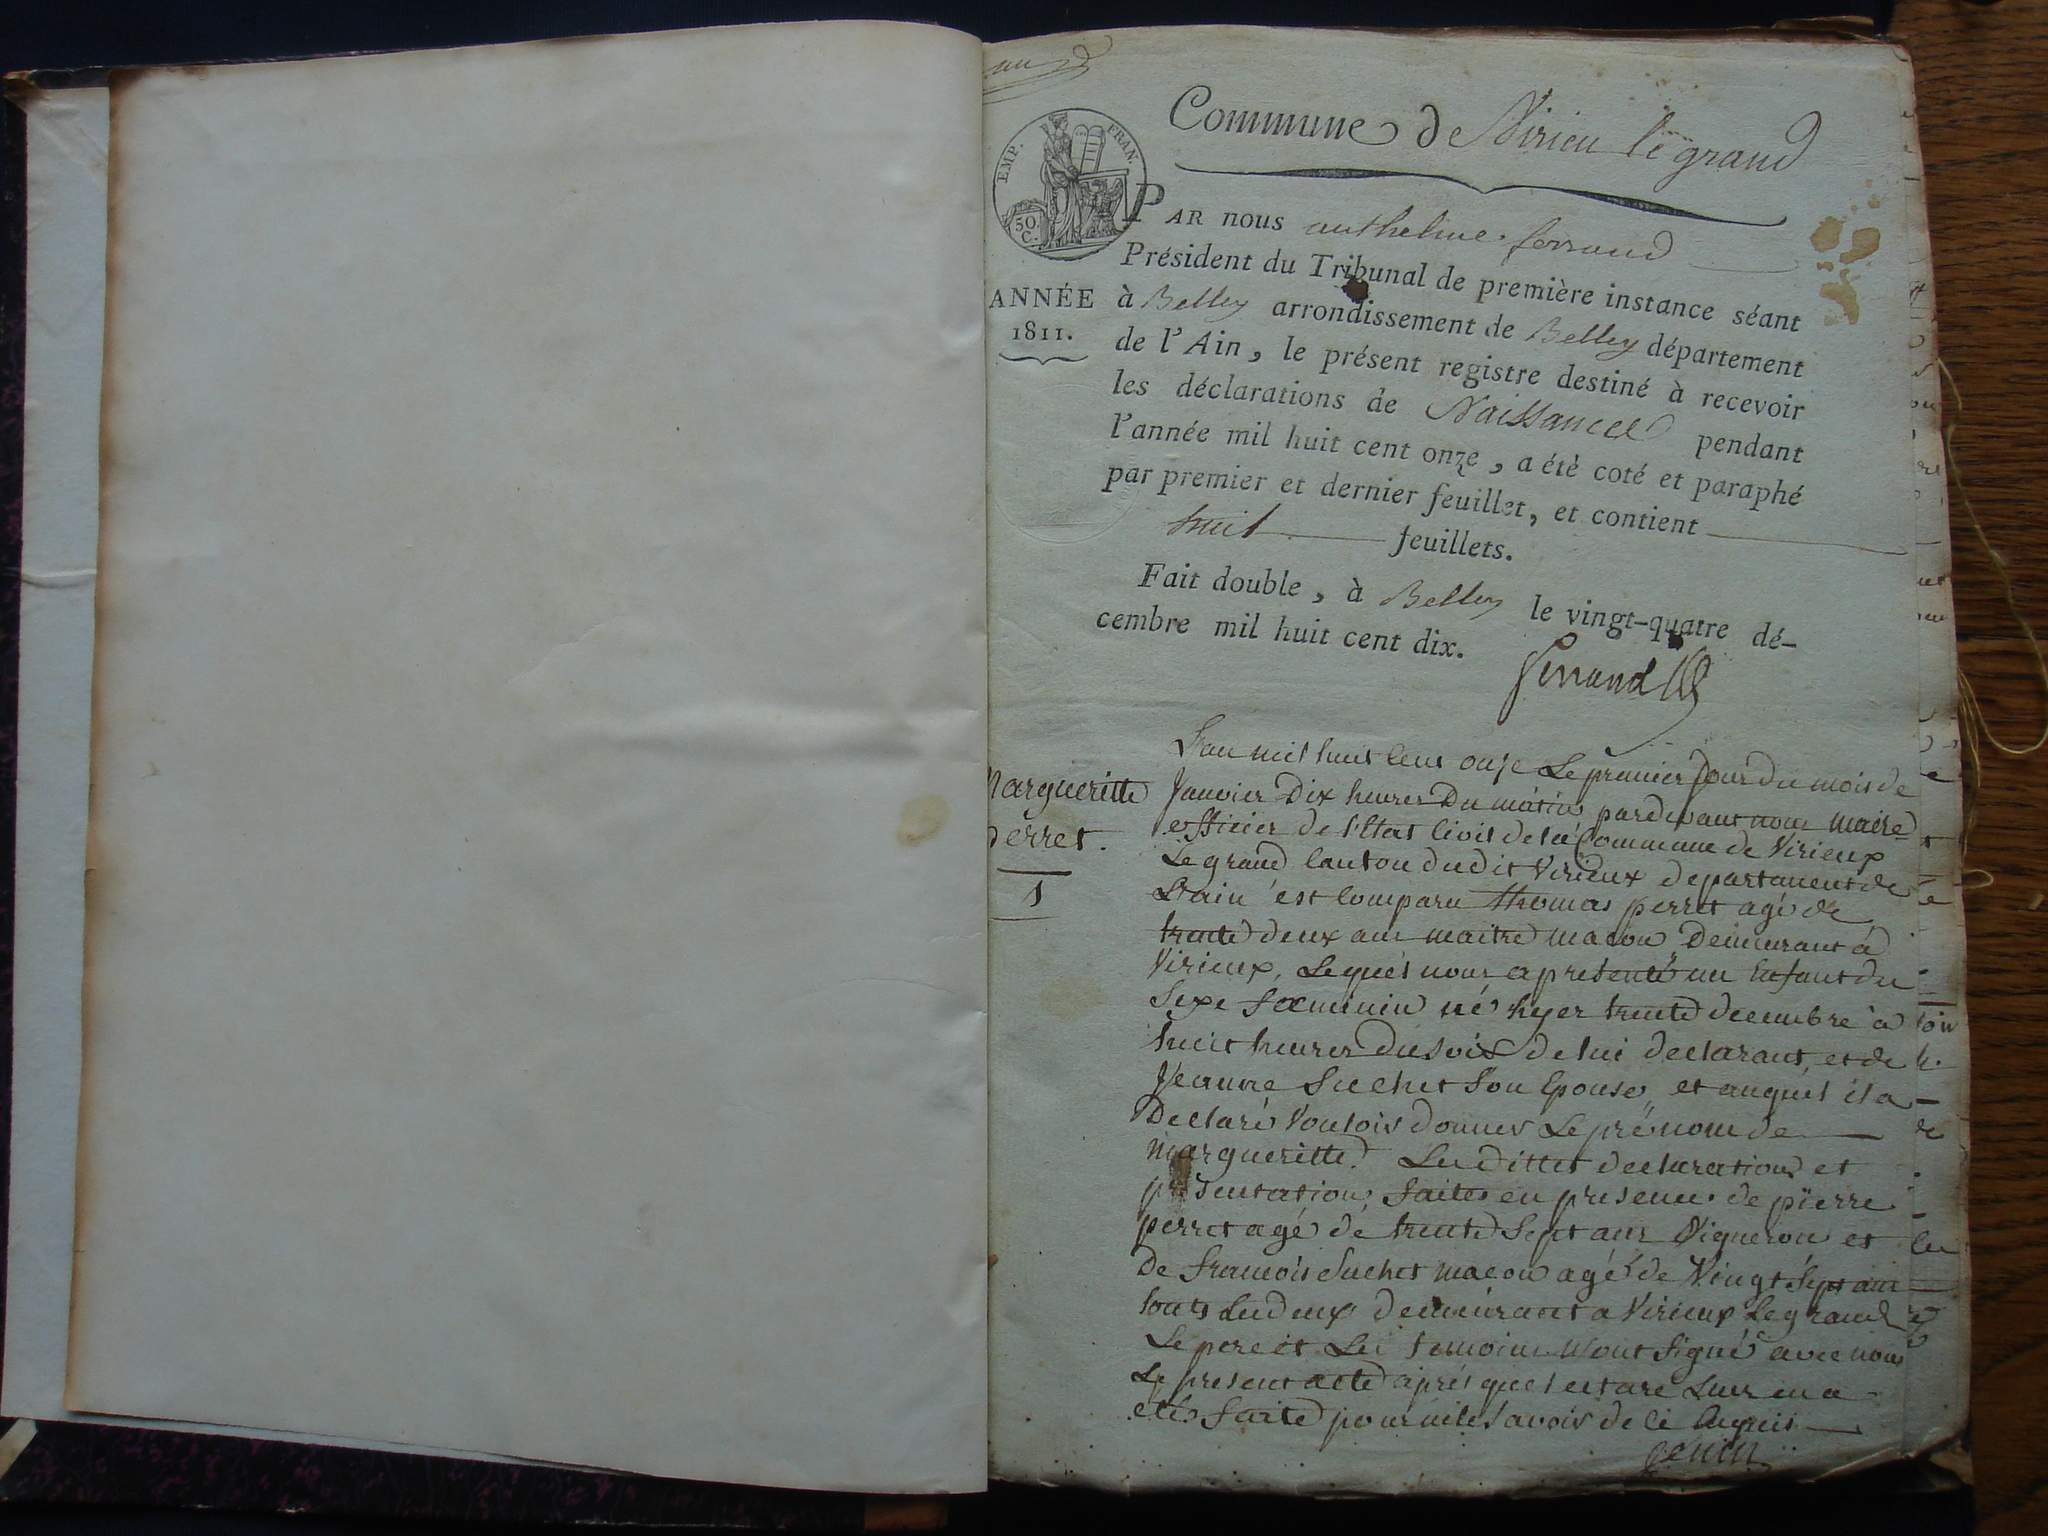 Commune de Virieu le grand
EMP. FRAN.
50.
C.
PAR nous anthelme ferrand
Président du Tribunal de première instance séant
ANNÉE
1811.
à Belley arrondissement de Belley département
de l'Ain, le présent registre destiné à recevoir
les déclarations de Naissances pendant
l'année mil huit cent onze, a été coté et paraphé
par premier et dernier feuillet, et contient
huit feuillets.
Fait double, à Belley le vingt-quatre dé-
cembre mil huit cent dix.
ferrand
Margueritte
perret.
1
L'an mil huit cent onze Le premier Jour du mois de
Janvier Dix heures Du matin pardevant nous maire
officier de l'Etat Civil de la Commune de Virieux
Le grand Canton dudit Virieux departement de
L'ain est comparu thomas perret agé de
trente deux ans maitre macon Demeurant à
Virieux, Lequel nous a presenté un Enfant du
Sexe foeminin né hyer trente decembre à
huit heures du soir de lui declarant, et de
Jeanne Suchet Son Epouse, et auquel il a
Declaré Vouloir donner Le prénom de
margueritte. Les dittes declaration et
presentation faites en presence de pierre
perret agé de trente Sept ans Vigneron et
De francois Suchet macon agé de Vingt Sept ans
touts Les deux demeurant a Virieux Le grand
Le pere et Les temoins n'ont Signé avec nous
Le present acte aprés que lecture Leur en a
eté faite pour ne le savoir de ce Enquis
Genin